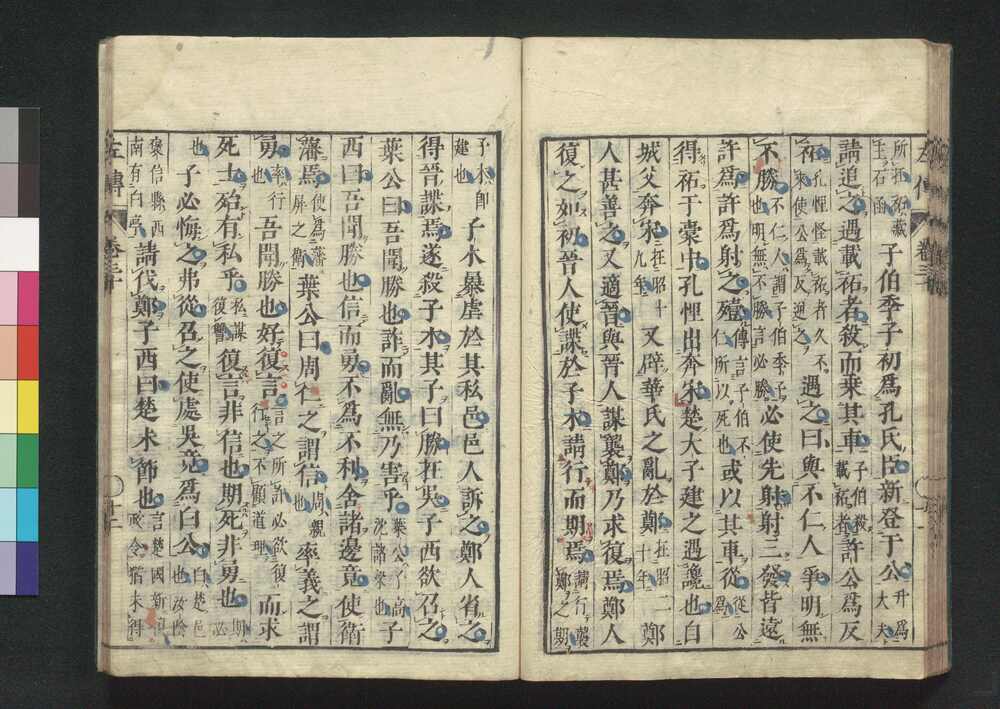 所在祏載
主石函 子伯季子初爲孔氏臣新登于公 升爲
大夫
請追之遇載祏者殺而乗其車 子伯殺
載祏者 許公爲反
祏 孔悝怪載祏者久不
來使公爲反逆之 遇之曰與不仁人爭明無
不勝 不仁人謂子伯季子
也明無不勝言必勝 必使先射射三發皆遠
許爲許爲射之殪 傳言子伯不
仁所以死也 或以其車從 從公
爲
得祏于槖中孔悝出奔宋楚大子建之遇讒也自
城父奔宋 在昭十
九年 又辟華氏之亂於鄭 在昭二
十年 鄭
人甚善之又適晉與晉人謀襲鄭乃求復焉鄭人
復之如初晉人使諜於子木請行而期焉 請行襲
鄭之期
子木卽
建也 子木暴虐於其私邑邑人訴之鄭人省之
得晉諜焉遂殺子木其子曰勝在吳子西欲召之
葉公曰吾聞勝也詐而亂無乃害乎 葉公子高
沈諸梁也 子
西曰吾聞勝也信而勇不爲不利舍諸邊竟使衛
藩焉 使爲藩
屏之衛 葉公曰周仁之謂信 周親
也 率義之謂
勇 率行
也 吾聞勝也好復言 言之所許必欲復
行之不顧道理 而求
死士殆有私乎 私謀
復讎 復言非信也期死非勇也 期必
也 子必悔之弗從召之使處吳竟爲白公 白楚邑
也汝陰
襃信縣西
南有白亭 請伐鄭子西曰楚未節也 言楚國新復
政令猶未得
左傳
卷三十
十一